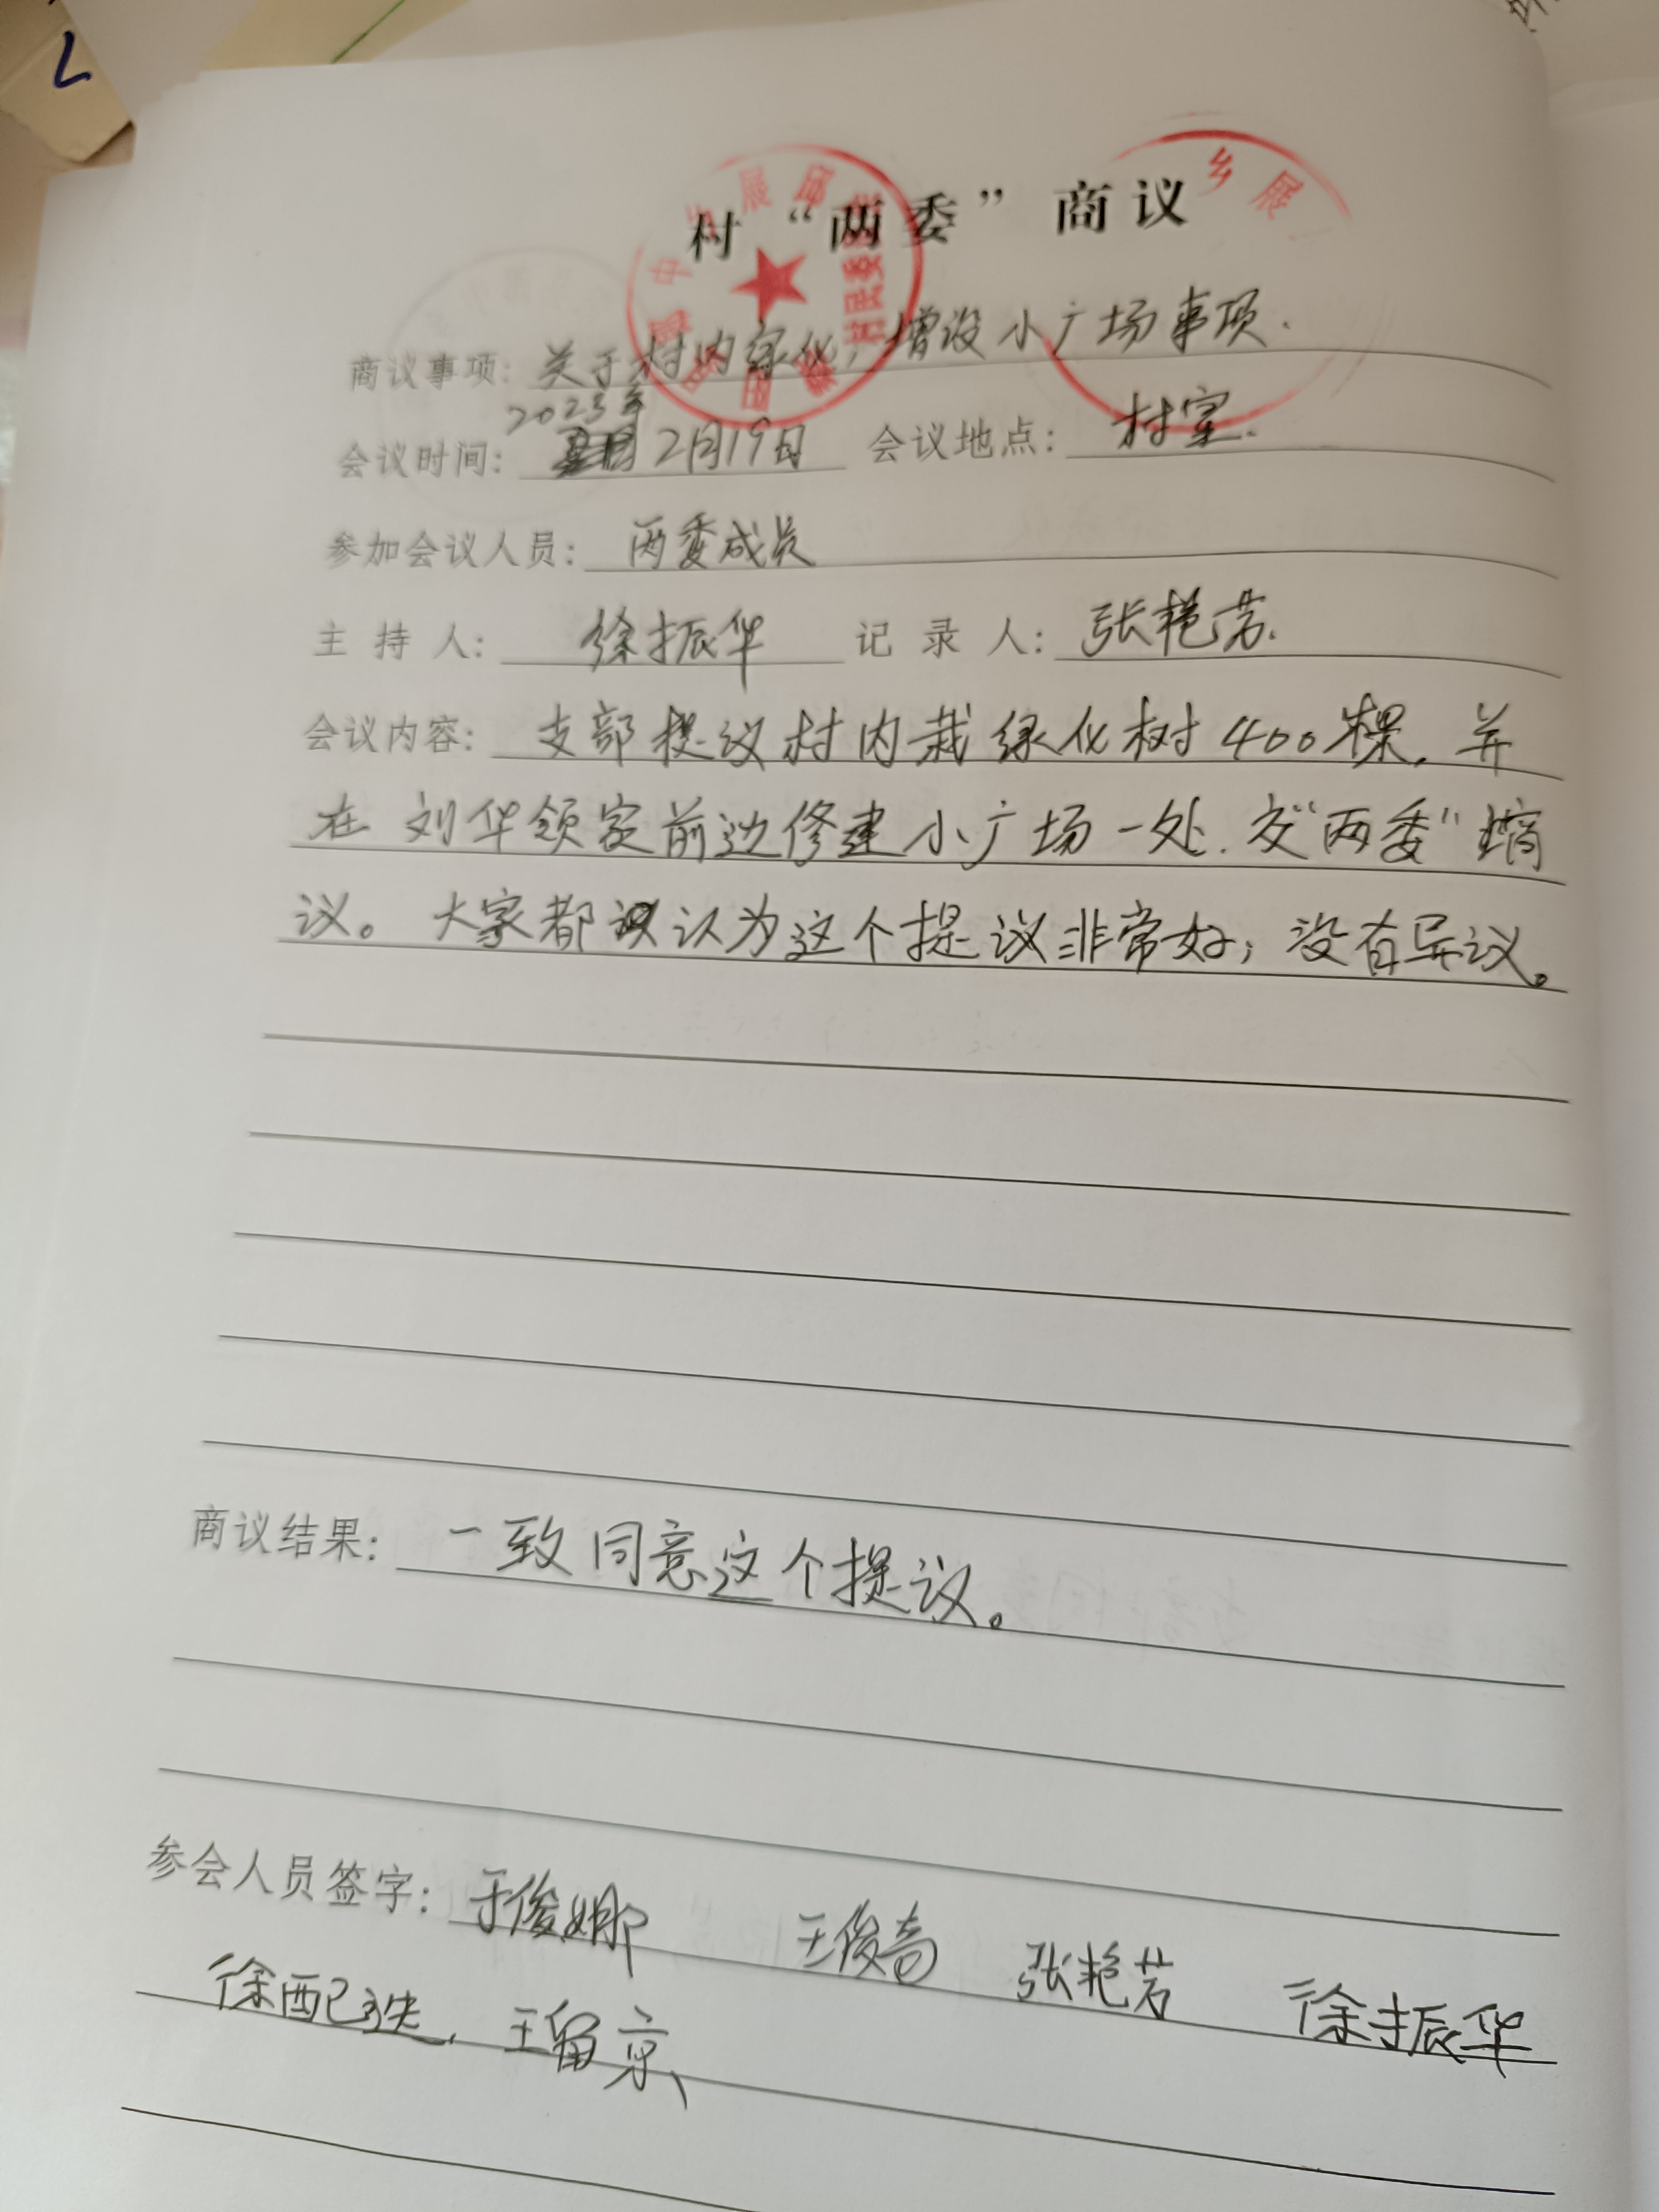 村“两委”商议
商议事项：关于村内绿化，增设小广场事项.
2023年
会议时间：2月19日 会议地点：村室.
参加会议人员：两委成员
主 持 人：徐振华 记 录 人：张艳芳.
会议内容：支部提议村内栽绿化树400棵. 并
在刘华领家前边修建小广场一处. 交“两委”
议。大家都认为这个提议非常好，没有异议。
商议结果：一致同意这个提议。
参会人员签字：于俊娜 王俊奇 张艳芳 徐振华
徐配 王留京
乡 展
展 邱
村民委员